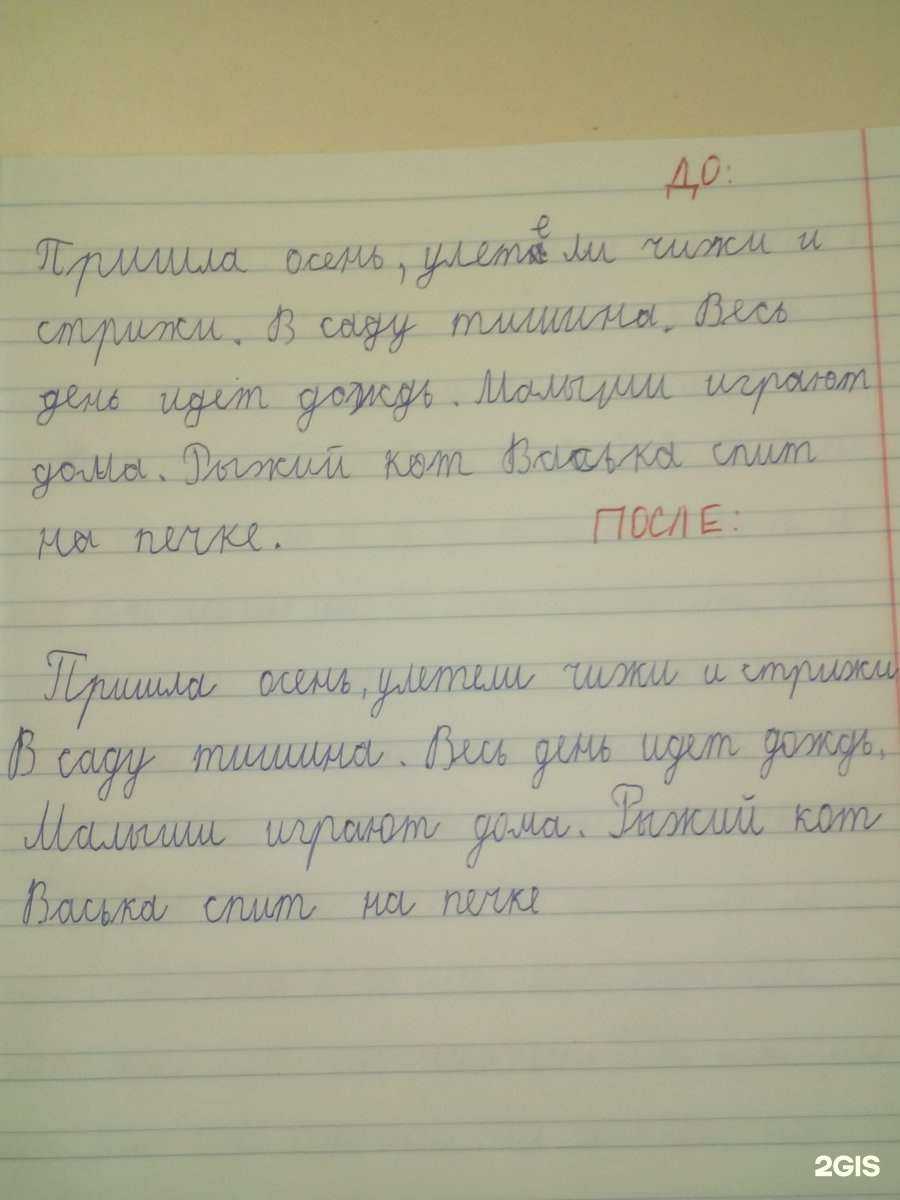 ДО:
Пришла осень, улетели чижи и
стрижи. В саду тишина. Весь
день идет дождь. Малыши играют
дома. Рыжий кот Васька спит
на печке.
ПОСЛЕ:
Пришла осень, улетели чижи и стрижи
В саду тишина. Весь день идет дождь.
Малыши играют дома. Рыжий кот
Васька спит на печке
2GIS